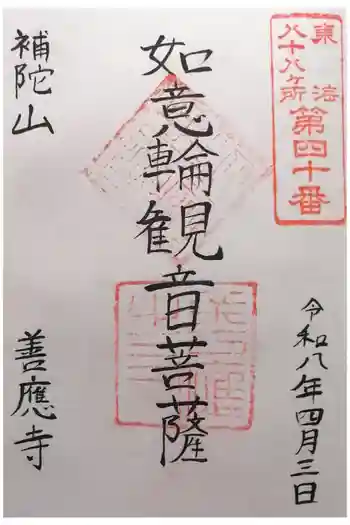 東法
八十八ヶ所
第四十番
如意輪観音菩薩
令和八年四月三日
補陀山
善應寺